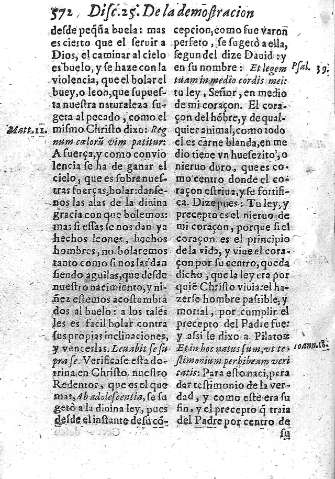 572 Disc. 25. De la demostracion
desde peqña buela: mas
es cierto que el seruir a
Dios, el caminar al cielo
es buelo, y se haze con la
violencia, que el bolar el
buey, o leon, que supues-
ta nuestra naturaleza suge-
ta al pecado, como el
Matt. 11.
mismo Christo dixo: Reg
num cælorũ vim patitur:
A fuerça, y como convio
lencia se ha de ganar el
cielo, que es sobre nues-
tras fuerças, bolar: danse-
nos las alas de la diuina
gracia con que bolemos:
mas si essas se nos dan ya
hechos leones, hechos
hombres, no bolaremos
tanto como si nos las dã
siendo aguilas, que desde
nuestro nacimiento, y ni-
ñez estemos acostumbra
dos al buelo: a los tales
les es facil bolar contra
sus propias inclinaciones,
y vencerlas. Leuabit se su
pra se. Verificase esta do-
trina en Christo nuestro
Redentor, que es el que
mas, Ab adolescentia, se su
getò a la diuina ley, pues
desde el instante de su cõ-
cepcion, como fue varon
perfeto, se sugetò a ella,
segun del dize Dauid: y
en su nombre: Et legem
Psal. 39.
tuam in medio cordis mei:
tu ley, Señor, en medio
de mi coraçon. El cora-
çon del hõbre, y de qual-
quier animal, como todo
el es carne blanda, en me
dio tiene vn huesezito, o
nieruo duro, que es co-
mo centro donde el co-
raçon estriua, y se fortifi-
ca. Dize pues: Tu ley, y
precepto es el nieruo de
mi coraçon, porque si el
coraçon es el principio
de la vida, y viue el cora-
çon por su centro, queda
dicho, que la ley era por
quiẽ Christo viuia: el ha-
zerse hombre pasible, y
mortal, por cumplir el
precepto del Padre fue:
y assi se dixo a Pilatos:
Et in hoc natus sum, vt tes
Ioann. 18.
timonium perhibeam veri
tatis: Para esto naci, para
dar testimonio de la ver-
dad, y como este era su
fin, y el precepto q̃ traía
del Padre por centro de
su